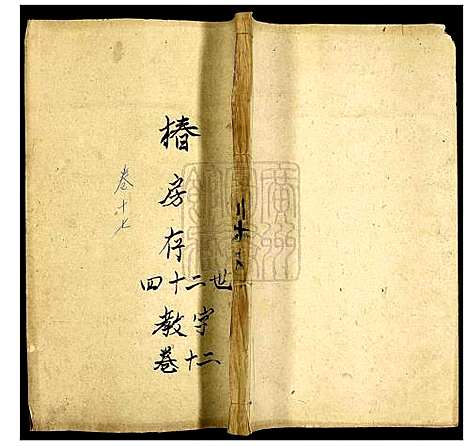 椿房存
四十二世
教字
卷十二
卷十七